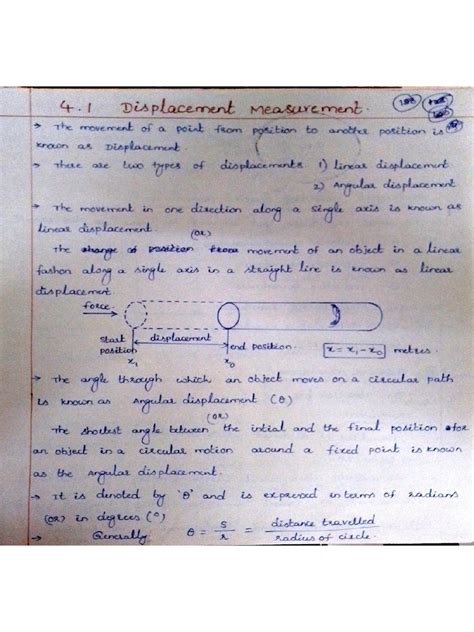 4.1 Displacement Measurement.
→ The movement of a point from position to another position is
known as Displacement.
→ There are two types of displacements 1) linear displacement
2) Angular displacement
→ The movement in one direction along a single axis is known as
linear displacement.
(or)
The change of position from movement of an object in a linear
fashon along a single axis in a straight line is known as linear
displacement.
force
start
position
x1
displacement
end position.
x0
x = x1 - x0 metres.
→ The angle through which an object moves on a circular path
is known as Angular displacement (θ)
(or)
The shortest angle between the intial and the final position for
an object in a circular motion around a fixed point is known
as the Angular displacement.
→ It is denoted by 'θ' and is expressed in terms of radians
(or) in degrees (°)
→ Generally θ = s/r = distance travelled / radius of circle.